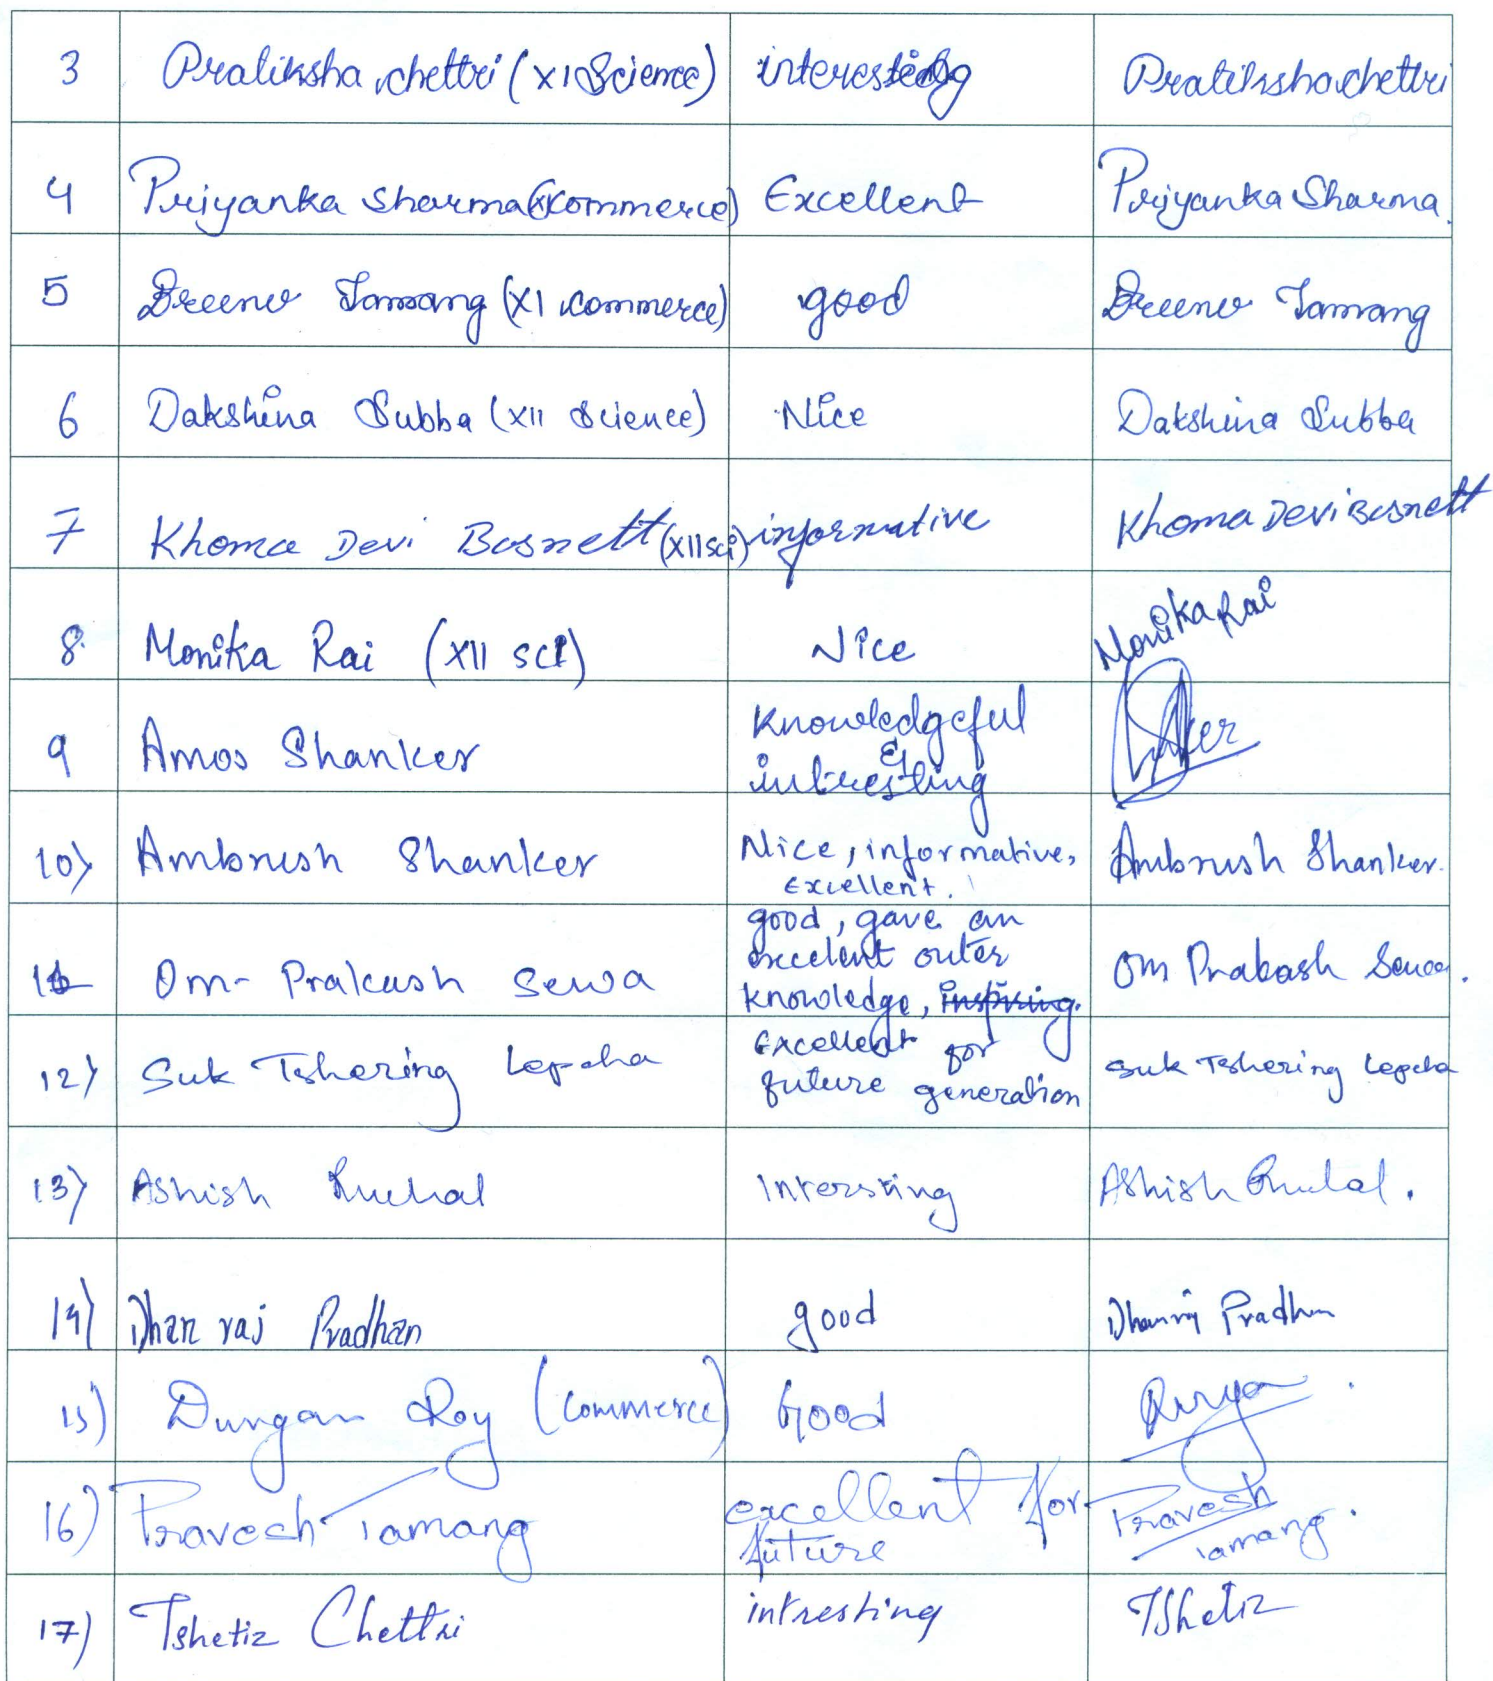 3 Pratiksha chettri (XI Science) interesting Pratiksha chettri
4 Priyanka Sharma (XI commerce) Excellent Priyanka Sharma.
5 Tamang (XI commerce) good Tamang
6 Dakshina Subba (XII Science) Nice Dakshina Subba
7 Khoma Devi Basnett (XII sci) informative Khoma Devi Basnett
8. Monika Rai (XII sci) Nice Monika Rai
9 Amos Shanker Knowledgeful & intresting
10) Ambrush Shanker Nice, informative, Excellent. Ambrush Shanker.
11 Om- Prakash Sewa good, gave an excelent outer knowledge, inspiring. Om Prakash Sewa.
12) Suk Tshering Lepcha Excellent for future generation Suk Tshering Lepcha
13) Ashish Intersting Ashish
14) Dhan raj Pradhan good Dhanraj Pradhan
15) Roy (Commerce) Good
16) Pravesh Tamang excellent for future Pravesh Tamang.
17) Tshetiz Chettri intresting Tshetiz